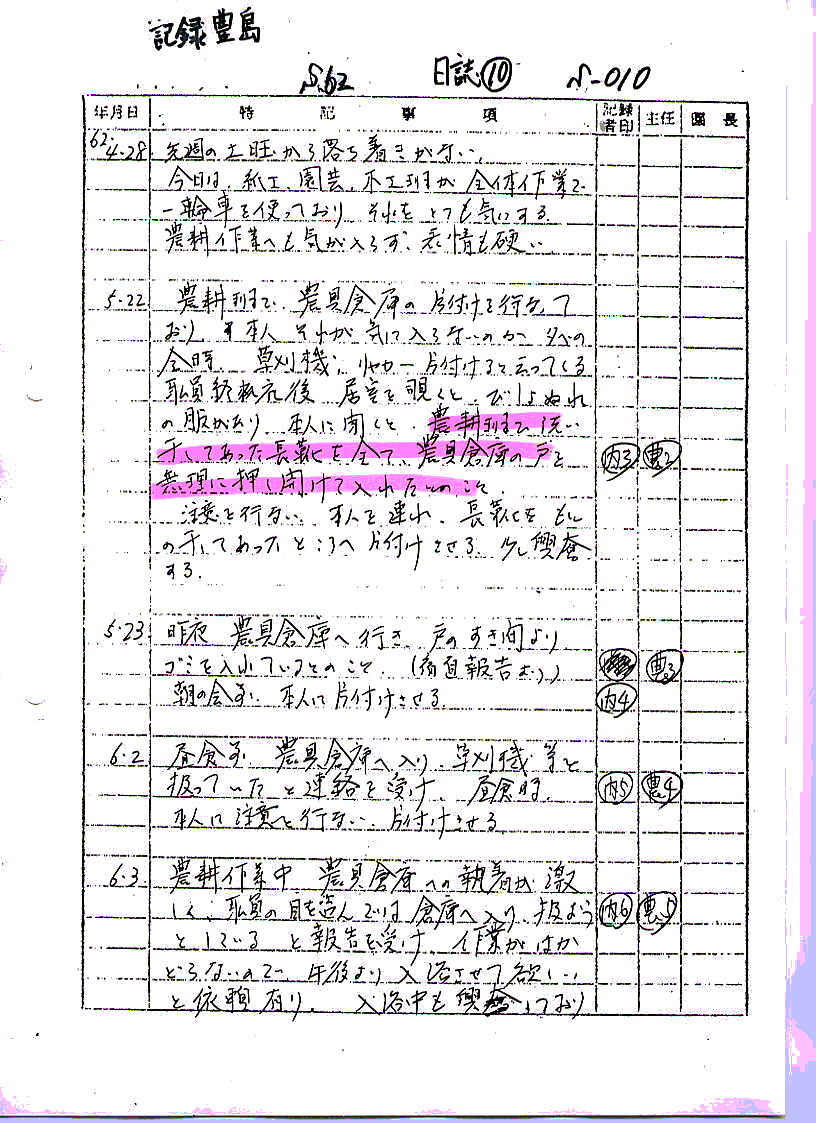 記録豊島
S.62 日誌⑩ S-010
年月日 特記事項 記録者印 主任 園長
62. 4.28 先週の土旺から落ち着きがない、
今日は、紙工、園芸、木工班が全体作業で
一輪車を使っており、それをとても気にする。
農耕作業へも気が入らず、表情も硬い
5.22 農耕班で、農具倉庫の片付けを行なって
おり、本人それが気に入らないのか 夕べの
会時 草刈機、リヤカー片付けると云ってくる
職員終礼后後 居室を覗くと、びしょぬれ
の服があり、本人に聞くと、農耕班で洗い
干してあった長靴を全て、農具倉庫の戸を 内3 農2
無理に押し開けて入れたとのこと
注意を行ない、本人を連れ、長靴をもと
の干してあったところへ片付けさせる、少し興奮
する。
5.23 昨夜 農具倉庫へ行き、戸のすき間より
ゴミを入れているとのこと、(宿直報告より) 農3
朝の会前、本人に片付けさせる。 内4
6.2 昼食前 農具倉庫へ入り、草刈機等を
扱っていたと連絡を受け、昼食時、 内5 農4
本人に注意を行ない、片付けさせる
6.3 農耕作業中 農具倉庫への執着が激
しく、職員の目を盗んでは倉庫へ入り、扱おう 内6 農5
としていると報告を受け、作業がはか
どらないので 午後より入浴させて欲しい
と依頼有り、 入浴中も興奮しており